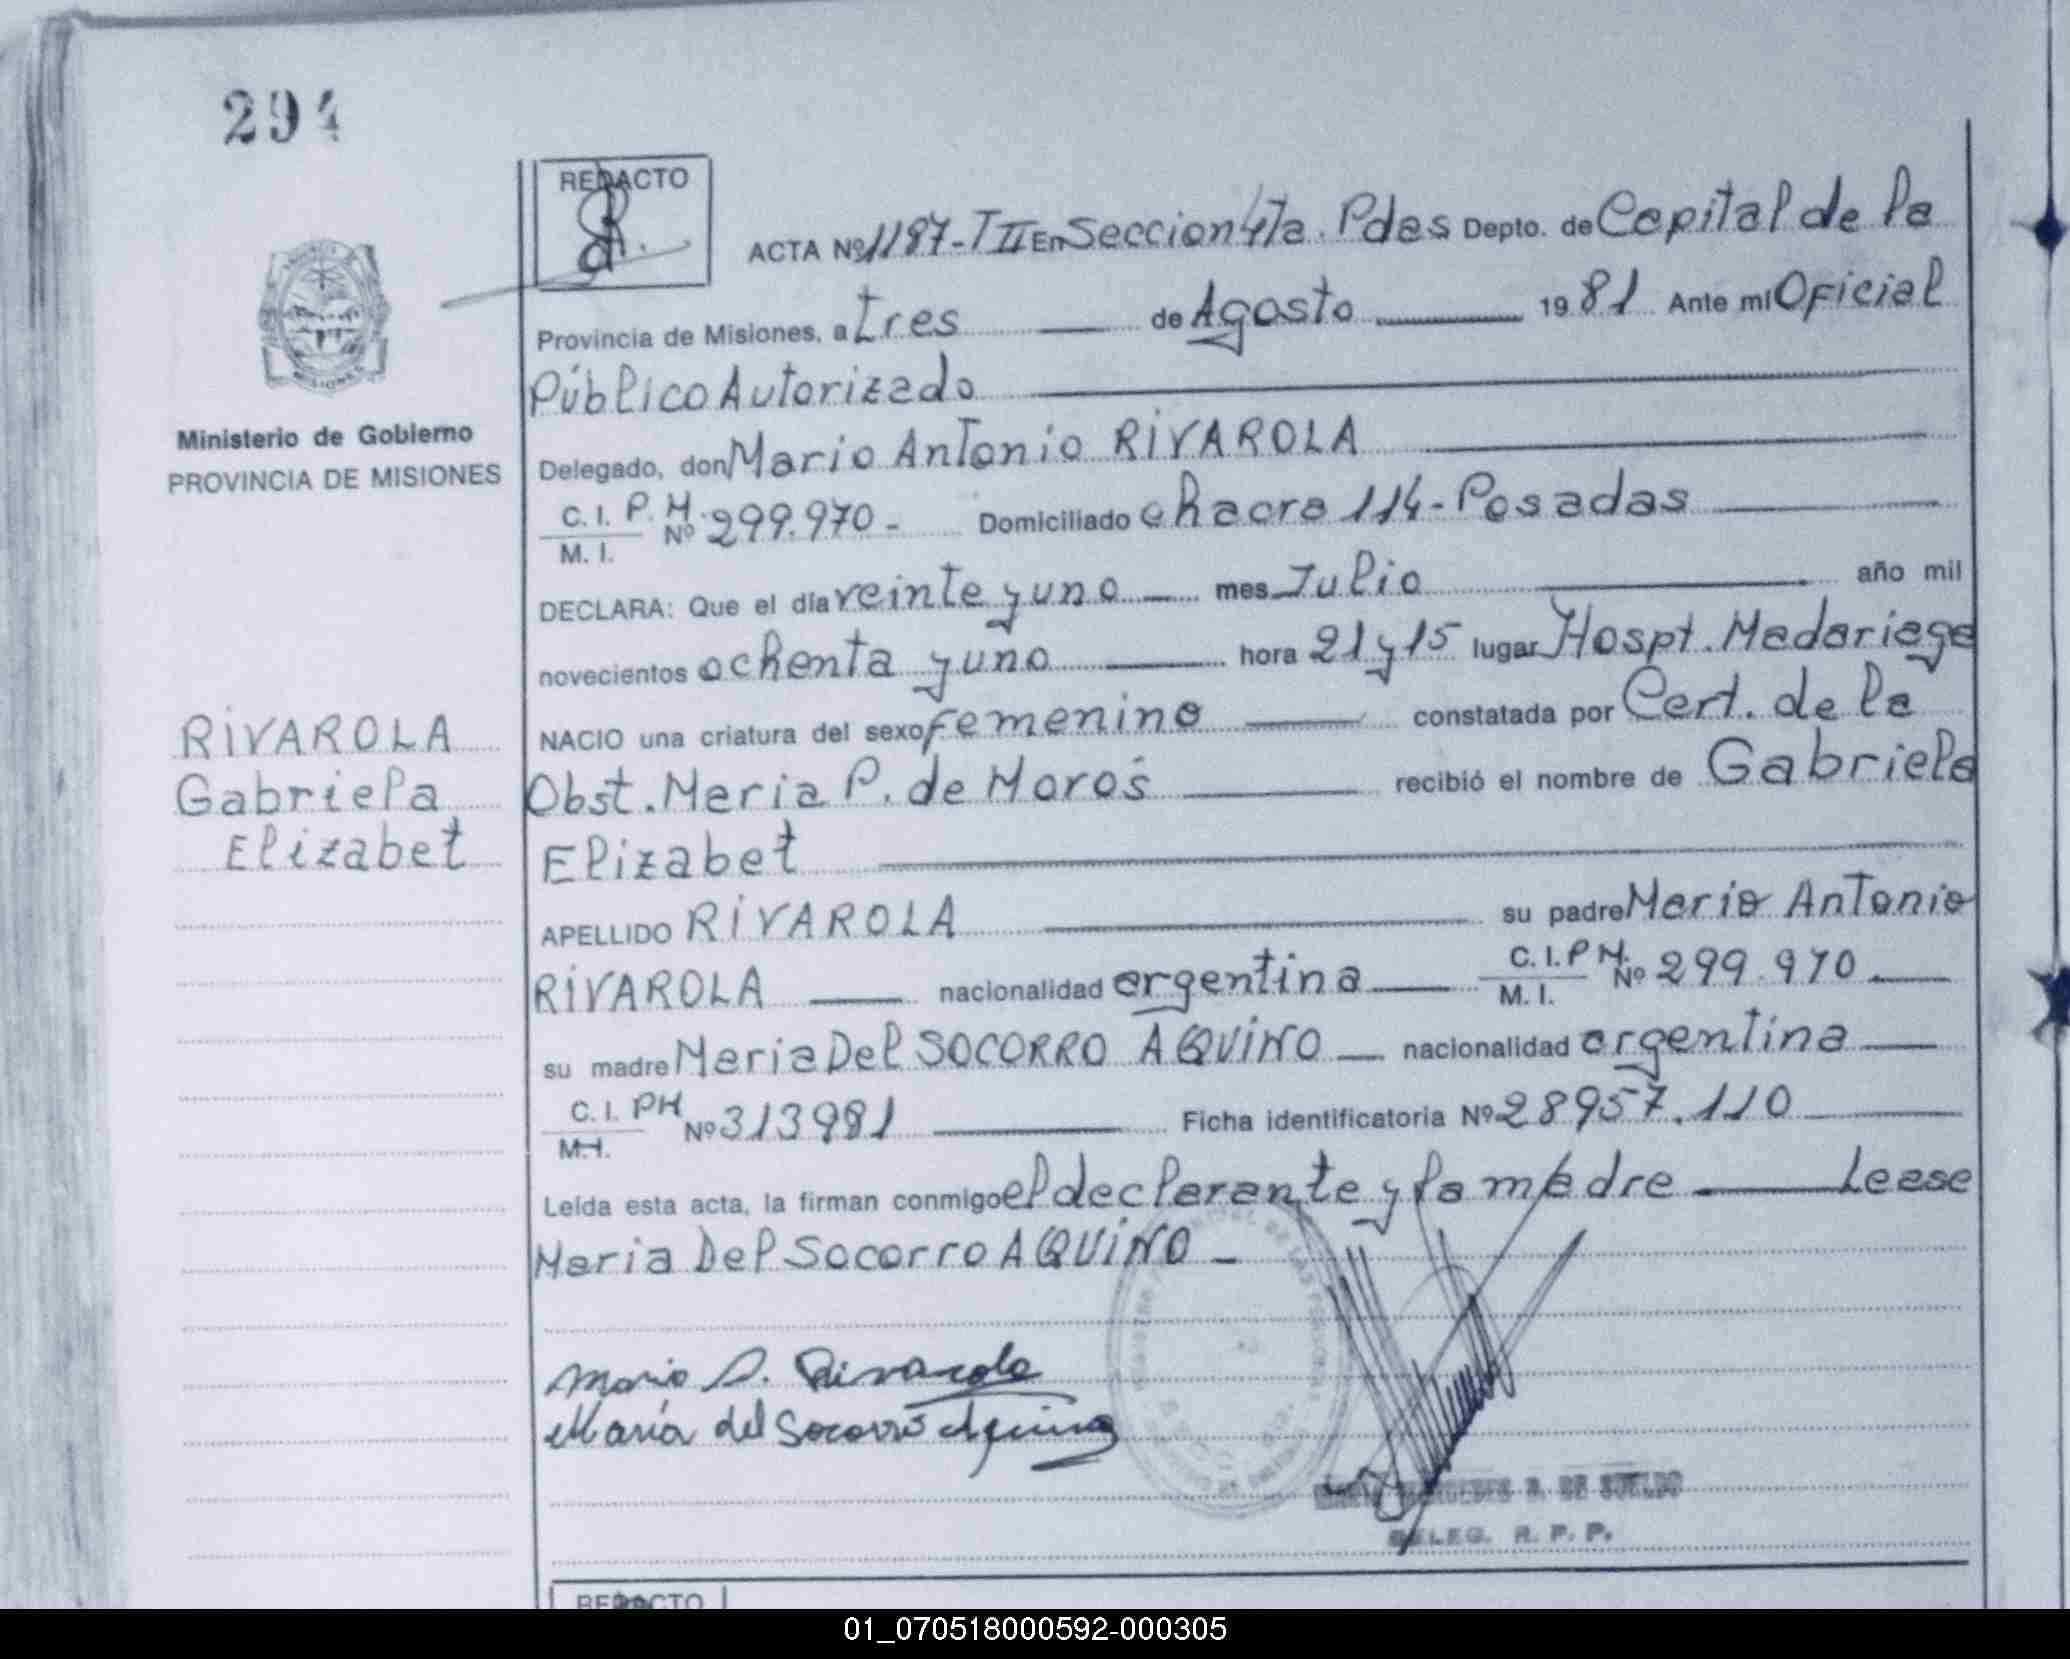 294
REDACTO
ACTA Nº 1187-T II En Seccion 4ta. Pdas Depto. de Capital de la
Provincia de Misiones, a tres de Agosto 19 81 Ante mi Oficial
Público Autorizado
Ministerio de Gobierno
PROVINCIA DE MISIONES
Delegado, don Mario Antonio RIVAROLA
C. I. P. M. Nº 299.970 - Domiciliado chacra 114 - Posadas
M. I.
DECLARA: Que el día veinte y uno mes Julio año mil
novecientos ochenta y uno hora 21 y 15 lugar Hospt. Madariaga
NACIO una criatura del sexo femenino constatada por Cert. de la
Obst. Maria P. de Moros recibió el nombre de Gabriela
Elizabet
RIVAROLA
Gabriela
Elizabet
APELLIDO RIVAROLA su padre Mario Antonio
RIVAROLA nacionalidad argentina C. I. P M. Nº 299.970
M. I.
su madre Maria Del SOCORRO AQUINO nacionalidad argentina
C. I. PM Nº 313981 Ficha identificatoria Nº 28957.110
M. I.
Leída esta acta, la firman conmigo el declarante y la madre Lease
Maria Del Socorro AQUINO -
Mario A. Rivarola
María del Socorro Aquino
DE SUELDO
DELEG. R. P. P.
REDACTO
01_070518000592-000305